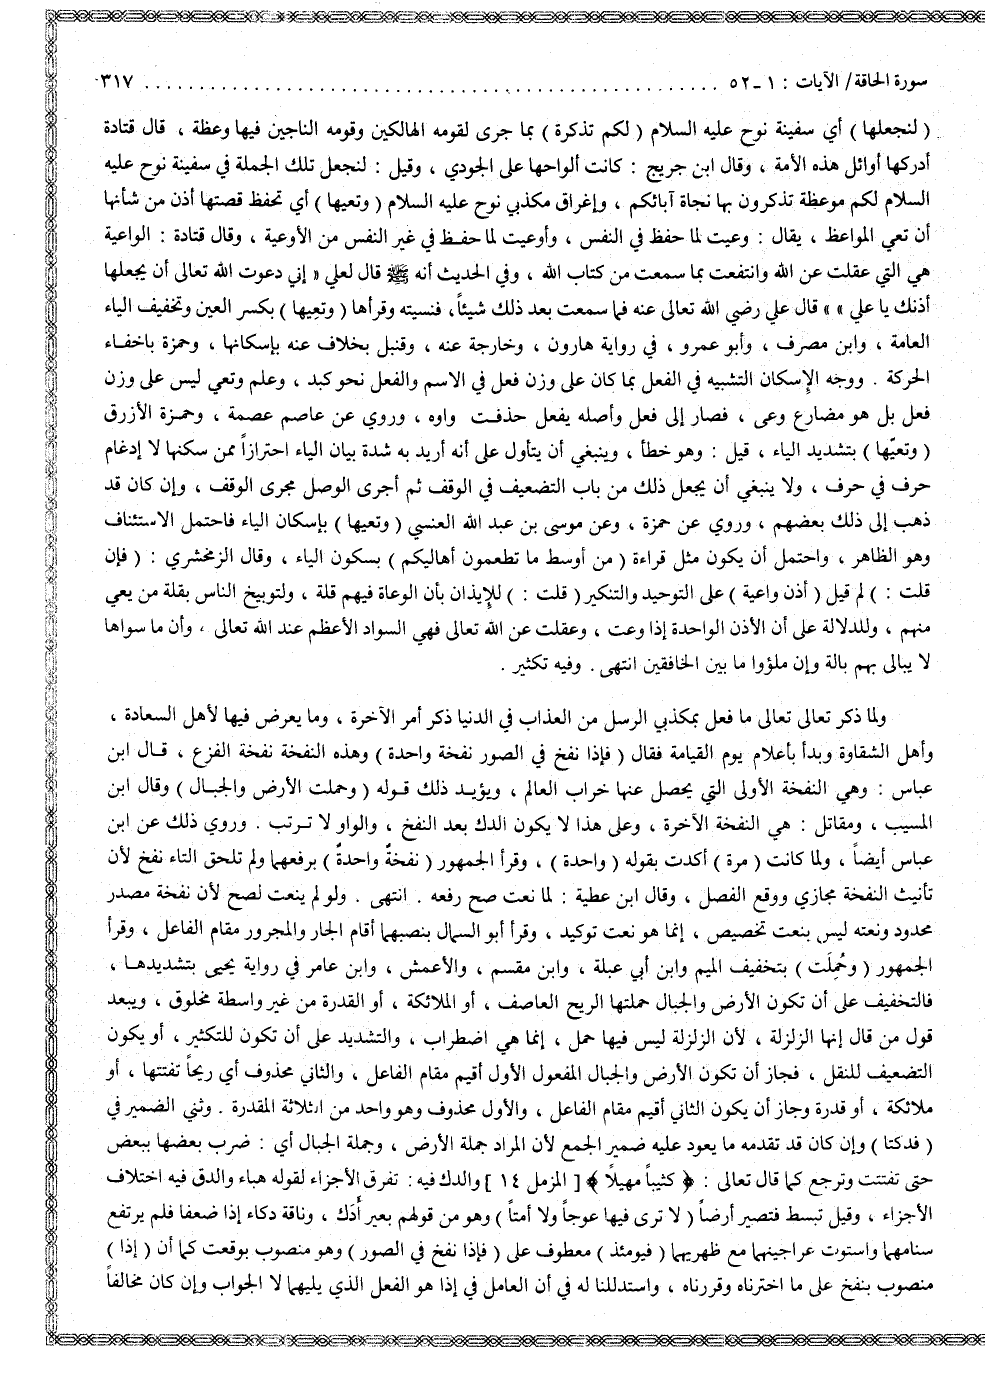 سورة الحاقة/ الآيات : ١ ـ ٥٢ ................................................ ٣١٧
( لنجعلها ) أي سفينة نوح عليه السلام ( لكم تذكرة ) بما جرى لقومه الهالكين وقومه الناجين فيها وعظة ، قال قتادة
أدركها أوائل هذه الأمة ، وقال ابن جريج : كانت ألواحها على الجودي ، وقيل : لنجعل تلك الجملة في سفينة نوح عليه
السلام لكم موعظة تذكرون بها نجاة آبائكم ، وإغراق مكذبي نوح عليه السلام ( وتعيها ) أي تحفظ قصتها أذن من شأنها
أن تعي المواعظ ، يقال : وعيت لما حفظ في النفس ، وأوعيت لما حفظ في غير النفس من الأوعية ، وقال قتادة : الواعية
هي التي عقلت عن الله وانتفعت بما سمعت من كتاب الله ، وفي الحديث أنه ﷺ قال لعلي « إني دعوت الله تعالى أن يجعلها
أذنك يا علي » » قال علي رضي الله تعالى عنه فما سمعت بعد ذلك شيئاً، فنسيته وقرأها ( وتعِيها ) بكسر العين وتخفيف الياء
العامة ، وابن مصرف ، وأبو عمرو ، في رواية هارون ، وخارجة عنه ، وقنبل بخلاف عنه بإسكانها ، وحمزة باخفاء
الحركة . ووجه الإسكان التشبيه في الفعل بما كان على وزن فعل في الاسم والفعل نحو كبد ، وعلم وتعي ليس على وزن
فعل بل هو مضارع وعى ، فصار إلى فعل وأصله يفعل حذفت واوه ، وروي عن عاصم عصمة ، وحمزة الأزرق
( وتعيّها ) بتشديد الياء ، قيل : وهو خطأ ، وينبغي أن يتأول على أنه أريد به شدة بيان الياء احترازاً ممن سكنها لا إدغام
حرف في حرف ، ولا ينبغي أن يجعل ذلك من باب التضعيف في الوقف ثم أجرى الوصل مجرى الوقف ، وإن كان قد
ذهب إلى ذلك بعضهم ، وروي عن حمزة ، وعن موسى بن عبد الله العنسي ( وتعيها ) بإسكان الياء فاحتمل الاستئناف
وهو الظاهر ، واحتمل أن يكون مثل قراءة ( من أوسط ما تطعمون أهاليكم ) بسكون الياء ، وقال الزمخشري : ( فإن
قلت : ) لم قيل ( أذن واعية ) على التوحيد والتنكير ( قلت : ) للإيذان بأن الوعاة فيهم قلة ، ولتوبيخ الناس بقلة من يعي
منهم ، وللدلالة على أن الأذن الواحدة إذا وعت ، وعقلت عن الله تعالى فهي السواد الأعظم عند الله تعالى ، وأن ما سواها
لا يبالى بهم بالة وإن ملؤوا ما بين الخافقين انتهى . وفيه تكثير .
ولما ذكر تعالى تعالى ما فعل بمكذبي الرسل من العذاب في الدنيا ذكر أمر الآخرة ، وما يعرض فيها لأهل السعادة ،
وأهل الشقاوة وبدأ بأعلام يوم القيامة فقال ( فإذا نفخ في الصور نفخة واحدة ) وهذه النفخة نفخة الفزع ، قال ابن
عباس : وهي النفخة الأولى التي يحصل عنها خراب العالم ، ويؤيد ذلك قوله ( وحملت الأرض والجبال ) وقال ابن
المسيب ، ومقاتل : هي النفخة الآخرة ، وعلى هذا لا يكون الدك بعد النفخ ، والواو لا ترتب . وروي ذلك عن ابن
عباس أيضاً ، ولما كانت ( مرة ) أكدت بقوله ( واحدة ) ، وقرأ الجمهور ( نفخةٌ واحدةٌ ) برفعهما ولم تلحق التاء نفخ لأن
تأنيث النفخة مجازي ووقع الفصل ، وقال ابن عطية : لما نعت صح رفعه . انتهى . ولو لم ينعت لصح لأن نفخة مصدر
محدود ونعته ليس بنعت تخصيص ، إنما هو نعت توكيد ، وقرأ أبو السمال بنصبهما أقام الجار والمجرور مقام الفاعل ، وقرأ
الجمهور ( وحُمِلَت ) بتخفيف الميم وابن أبي عبلة ، وابن مقسم ، والأعمش ، وابن عامر في رواية يحيى بتشديدها ،
فالتخفيف على أن تكون الأرض والجبال حملتها الريح العاصف ، أو الملائكة ، أو القدرة من غير واسطة مخلوق ، ويبعد
قول من قال إنها الزلزلة ، لأن الزلزلة ليس فيها حمل ، إنما هي اضطراب ، والتشديد على أن تكون للتكثير ، أو يكون
التضعيف للنقل ، فجاز أن تكون الأرض والجبال المفعول الأول أقيم مقام الفاعل ، والثاني محذوف أي ريحاً تفتتها ، أو
ملائكة ، أو قدرة وجاز أن يكون الثاني أقيم مقام الفاعل ، والأول محذوف وهو واحد من الثلاثة المقدرة . وثني الضمير في
( فدكتا ) وإن كان قد تقدمه ما يعود عليه ضمير الجمع لأن المراد جملة الأرض ، وجملة الجبال أي : ضرب بعضها ببعض
حتى تفتتت وترجع كما قال تعالى : ﴿ كثيباً مهيلاً ﴾ [ المزمل ١٤ ] والدك فيه : تفرق الأجزاء لقوله هباء والدق فيه اختلاف
الأجزاء ، وقيل تبسط فتصير أرضاً ( لا ترى فيها عوجاً ولا أمتاً ) وهو من قولهم بعير أدَك ، وناقة دكاء إذا ضعفا فلم يرتفع
سنامهما واستوت عراجينهما مع ظهريهما ( فيومئذ ) معطوف على ( فإذا نفخ في الصور ) وهو منصوب بوقعت كما أن ( إذا )
منصوب بنفخ على ما اخترناه وقررناه ، واستدللنا له في أن العامل في إذا هو الفعل الذي يليها لا الجواب وإن كان مخالفاً